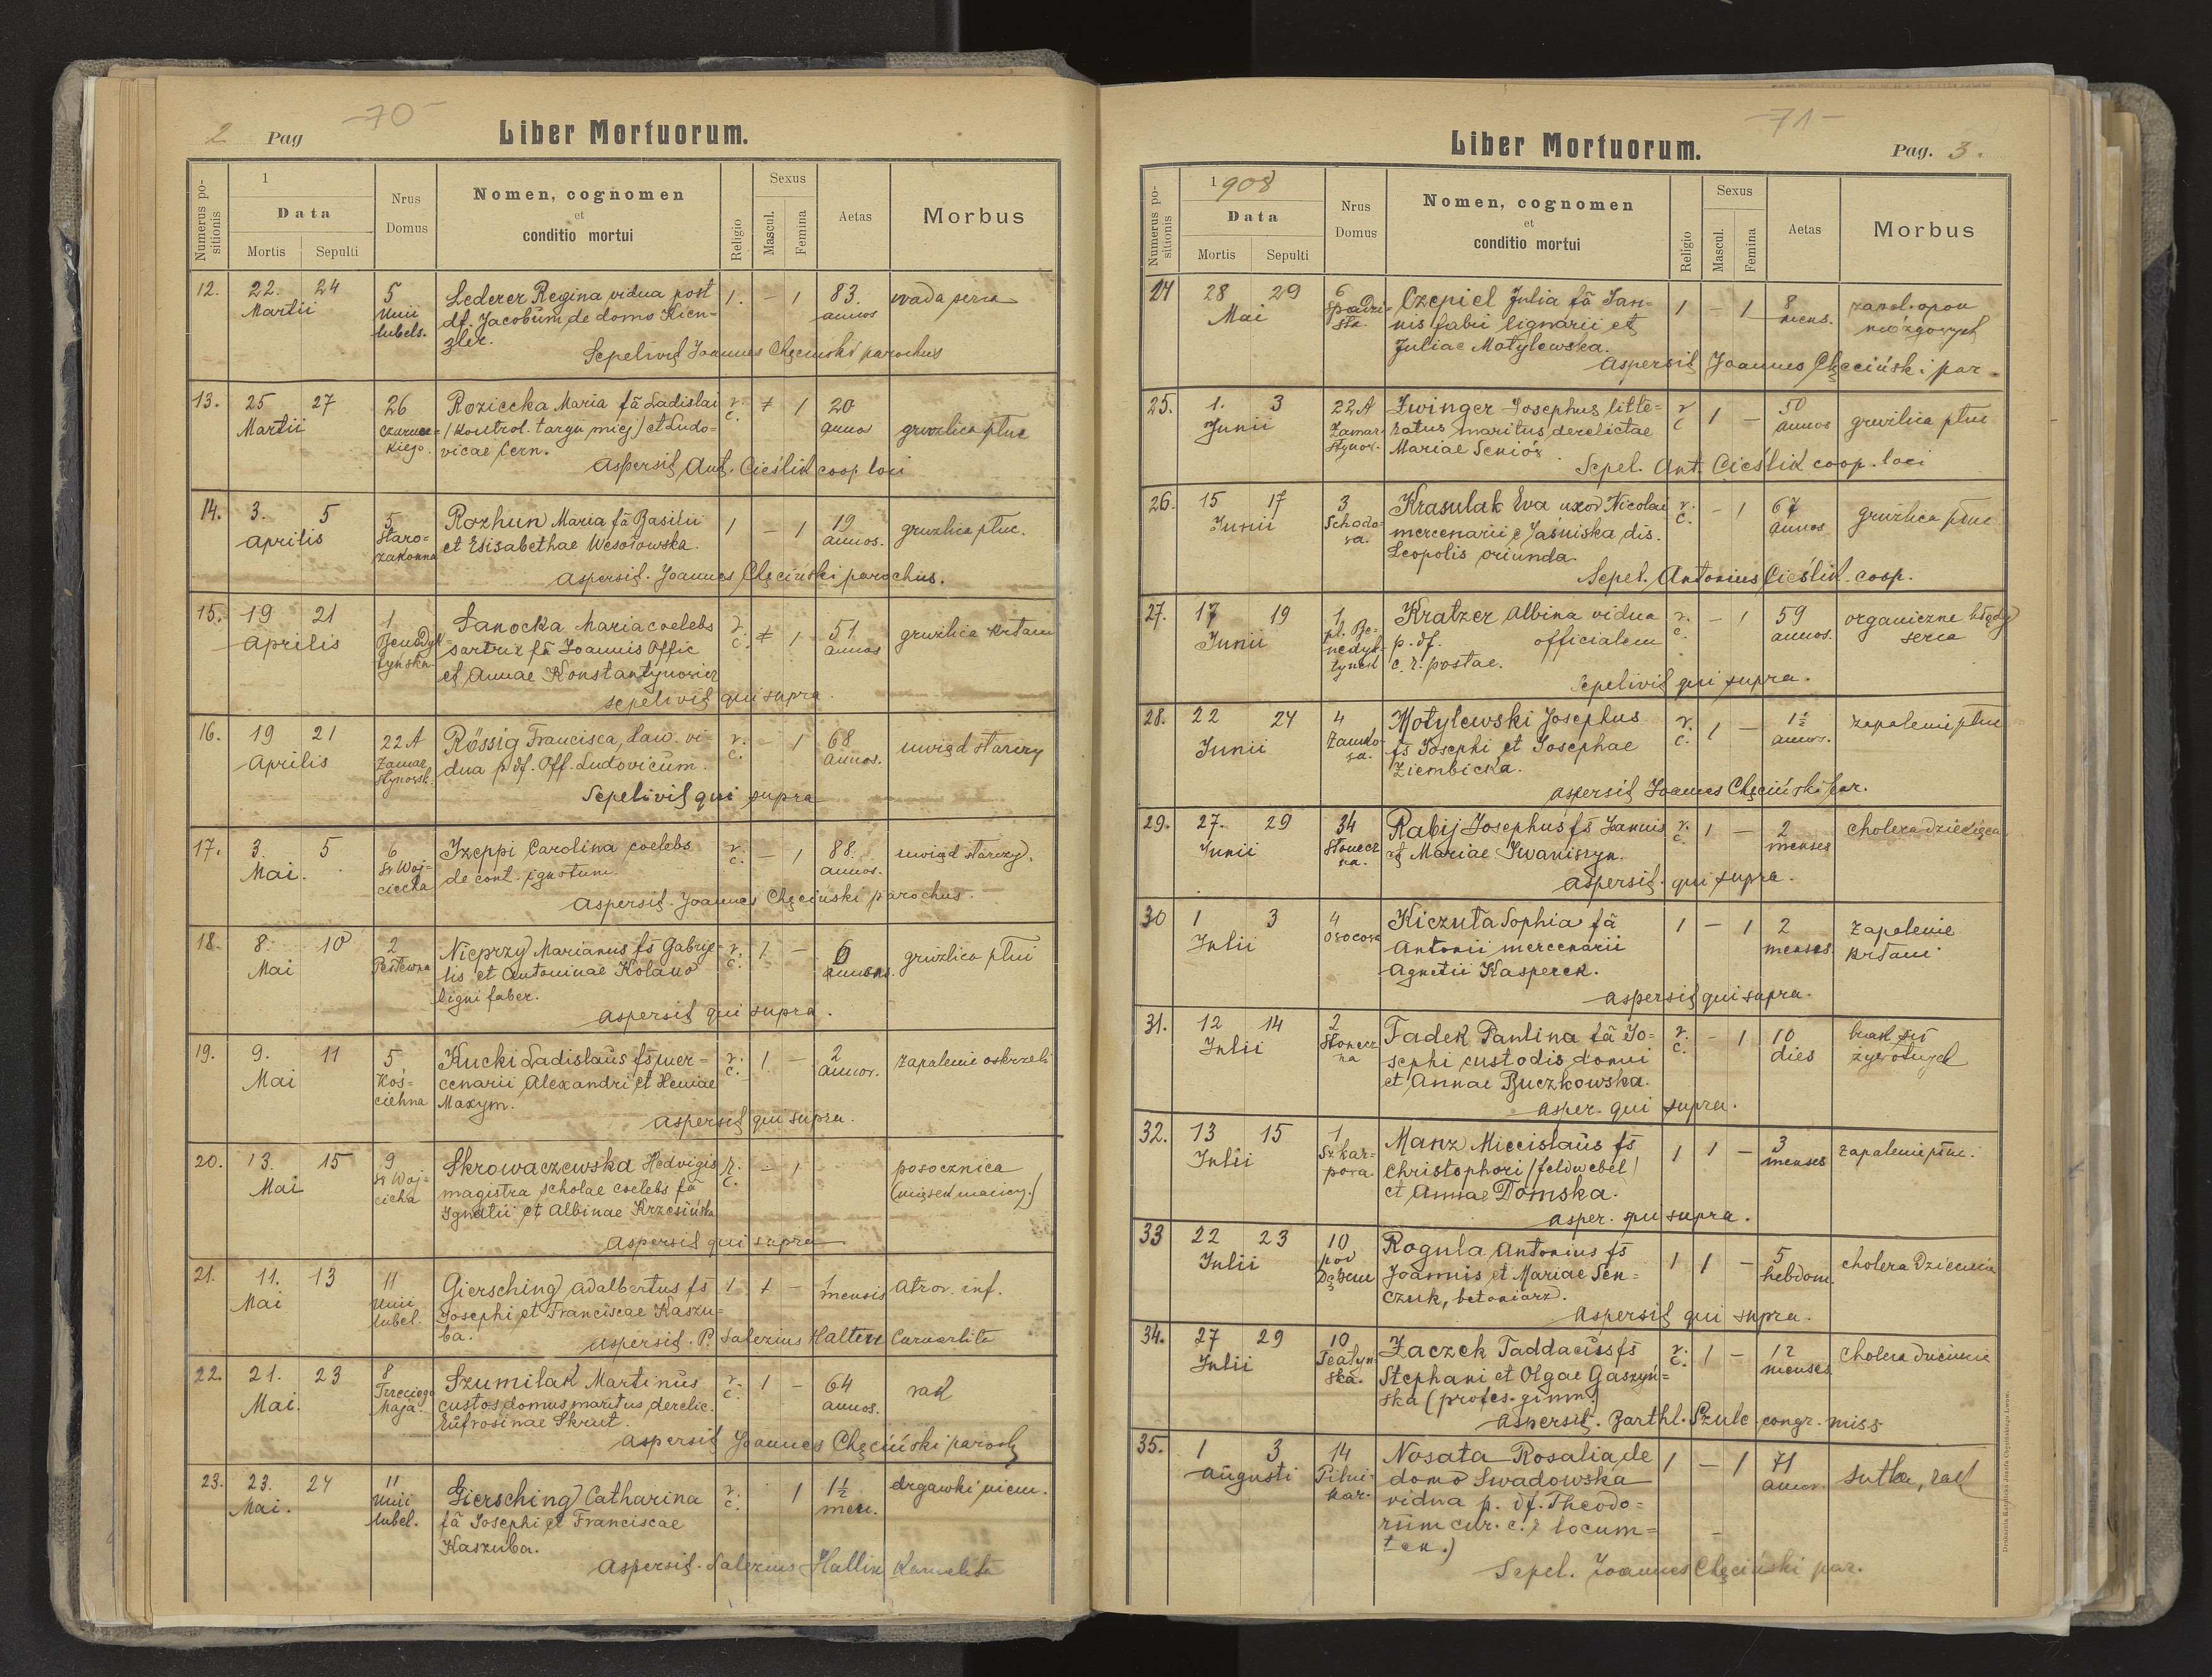 -70-
2 Pag
Liber Mortuorum.
Numerus positionis
1
Data
Mortis Sepulti
Nrus Domus
Nomen, cognomen
et
conditio mortui
Religio
Sexus
Mascul. Femina
Aetas
Morbus
12. 22. 24 5 Lederer Regina vidua post 1. - 1 83. wada serca
Martii Unii df. Jacobum de domo Kien- annos
lubels. zler.
Sepelivit Joannes Chęciński parochus
13. 25 27 26 Roziecka Maria fa Ladislai r. c. 1 20
Martii Czarniec= (kontrol. targu miej) et Ludo= annos gruźlica płuc
kiego. vicae Cern.
Aspersit Ant. Cieślik coop. loci
14. 3. 5 5 Rozhun Maria fa Basilii 1 - 1 19 gruźlica płuc.
Aprilis Staro= et Elisabethae Wesołowska. annos.
zakonna
Aspersit. Joannes Chęciński parochus.
15. 19 21 1 Sanocka Maria coelebs r. c. 1 51 gruźlica krtani
Aprilis Benedyk sartrix fa Joannis Offic annos
tyńska et Annae Konstantynowicz
sepelivit qui supra.
16. 19 21 22A Rössig Francisca, vi= r. c. - 1 68 uwiąd starczy
Aprilis Zamar dua p. df. Off. Ludovicum. annos.
stynowsk.
Sepelivit qui supra
17. 3. 5 6 Izeppi Carolina coelebs r. c. - 1 88. uwiąd starczy.
Mai. Sw Woj= de cont. ignotum. annos.
ciecha
Aspersit. Joannes Chęciński parochus.
18. 8. 10 2 Nieprzy Marianus fs Gabrie- r. c. 1 - 6 gruźlica płuc
Mai lis et Antoninae Kolano
ligni faber.
Aspersit qui supra.
19. 9. 11 5 Kucki Ladislaus fs mer= r. c. 1 - 2 zapalenie oskrzeli
Mai Koś= cenarii Alexandri et Heniae annor.
cielna Maxym.
Aspersit qui supra.
20. 13. 15 9 Skrowaczewska Hedvigis r. c. - 1 posocznica
Mai Sw Woj= magistra scholae coelebs fa
ciecha Ignatii et Albinae Krzesińska
Aspersit qui supra
21. 11. 13 11 Giersching Adalbertus fs 1 1 - 1 Atrov. inf.
Mai Unii Josephi et Franciscae Kaszu= mensis
lubel. ba.
Aspersit. P. Salezius Halten Carmelite
22. 21. 23 8 Szumilak Martinus r. c. 1 - 64 rak
Mai. Trzeciego custos domus maritus derelic. annos.
Maja. Eufrosinae Skrut.
Aspersit Joannes Chęciński paroch
23. 23. 24 11 Giersching Catharina r. c. 1 1½ drgawki niem.
Mai. Unii fa Josephi et Franciscae men.
lubel. Kaszuba.
Aspersit. Salezius Hallin Karmelita
-71-
Liber Mortuorum.
Pag. 3.
Numerus positionis
1908
Data
Mortis Sepulti
Nrus Domus
Nomen, cognomen
et
conditio mortui
Religio
Sexus
Mascul. Femina
Aetas
Morbus
24 28 29 6 Czepiel Julia fa Ioan= 1 - 1 8 zapal. opon
Mai Spadzi- nis fabri lignarii et mens. mózgowych
sta. Juliae Motylewska.
Aspersit Joannes Chęciński par=
25. 1. 3 22A Zwinger Josephus litte= r c 1 - 50 gruźlica płuc
Junii Zamar ratus maritus derelictae annos
stynow. Mariae Senior.
Sepel. Ant. Cieślik coop. loci
26. 15 17 3 Krasulak Eva uxor Nicolai r. c. - 1 67 gruźlica płuc
Junii Schodo= mercenarii e Jaśniska dis. annos
wa. Leopolis oriunda.
Sepel. Antonius Cieślik. coop.
27. 17 19 1 Kratzer Albina vidua r. c. - 1 59 organiczne błędy
Junii pl. Be- p. df. officialem annos. serca
nedyk- c. r. postae.
tynek
Sepelivit qui supra.
28. 22 24 4 Motylewski Josephus r. c. 1 - 1½ zapalenie płuc
Junii fs Josephi et Josephae annor.
Ziembicka.
Aspersit Joannes Chęciński par.
29. 27. 29 34 Rabij Josephus fs Joannis r. c. 1 - 2 cholera dziecięca
Junii Słonecz et Mariae Iwaniszyn. menses
na.
Aspersit. qui supra.
30 1 3 4 Kiczuta Sophia fa 1 - 1 2 zapalenie
Julii Antonii mercenarii menses krtani
Agnetii Kasperek.
Aspersit qui supra.
31. 12 14 2 Fadek Paulina fa Jo= r. c. - 1 10 brak sił
Julii Słonecz sephi custodis domui dies żywotnych
na et Annae Buczkowska.
Asper. qui supra.
32. 13 15 1 Manz Miecislaus fs 1 1 - 3 zapalenie płuc.
Julii Szkar= Christophori (feldwebel) menses
powa. et Annae Tomska.
Asper. qui supra.
33 22 23 10 Rogula Antonius fs 1 1 - 5 cholera dziecinna
Julii pod Joannis et Mariae Sen= hebdom.
Dębem czuk, betoniarz.
Aspersit qui supra.
34. 27 29 10 Zaczek Taddaeus fs r. c. 1 - 12 cholera dziecinna
Julii Teatyn Stephani et Olgae Gaszyń= menses.
ska. ska (profes. gimn.)
Aspersit. Barthl. Szulc congr. miss
35. 1 3 14 Nosata Rosalia de 1 - 1 71 rak
Augusti Piłni- domo Swadowska annor.
kar. vidua p. df. Theodo=
rum cur. c. r locum=
ten.)
Sepel. Joannes Chęciński par.